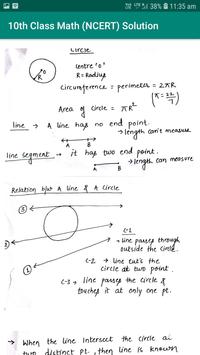 11:35 am
38%
10th Class Math (NCERT) Solution
Circle
centre 'O'
R = Radius
O
R
Circumference = perimeter = 2πR
(π = 22/7)
Area of circle = πR²
line → A line has no end point.
→ length can't measure
A B
line segment → it has two end point.
→ length can measure
A B
Relation b/w A line & A Circle
③
②
①
C-1
→ line passes through
outside the circle.
C-2 → line cut's the
circle at two point.
C-3 → line passes the circle &
touches it at only one pt.
→ When the line intersect the circle at
two distinct pt., then line is known